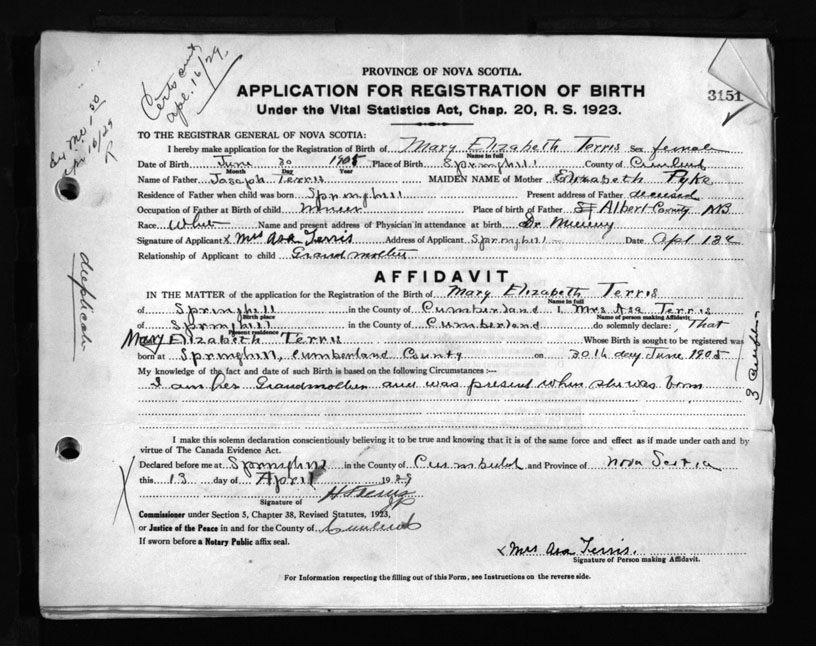 PROVINCE OF NOVA SCOTIA.
APPLICATION FOR REGISTRATION OF BIRTH
Under the Vital Statistics Act, Chap. 20, R. S. 1923.
3151
apl. 16/29
apr 16/29
R
duplicate
TO THE REGISTRAR GENERAL OF NOVA SCOTIA:
I hereby make application for the Registration of Birth of Mary Elizabeth Terris Sex female
Name in full
Date of Birth June 30 1905 Place of Birth Springhill County of
Month Day Year
Name of Father Joseph Terris MAIDEN NAME of Mother Elizabeth Pyke
Residence of Father when child was born Springhill Present address of Father deceased
Occupation of Father at Birth of child miner Place of birth of Father Albert County NB
Race White Name and present address of Physician in attendance at birth Dr
Signature of Applicant x Mrs Asa Terris Address of Applicant Springhill Date Apl 13
Relationship of Applicant to child Grandmother
AFFIDAVIT
IN THE MATTER of the application for the Registration of the Birth of Mary Elizabeth Terris
Name in full
of Springhill in the County of Cumberland I, Mrs Asa Terris
Birth place Name of person making Affidavit
of Springhill in the County of Cumberland do solemnly declare, That
Present residence
Mary Elizabeth Terris Whose Birth is sought to be registered was
born at Springhill, Cumberland County on 30th day June 1905
My knowledge of the fact and date of such Birth is based on the following Circumstances :—
I am her Grandmother and was present when she was born
I make this solemn declaration conscientiously believing it to be true and knowing that it is of the same force and effect as if made under oath and by
virtue of The Canada Evidence Act.
Declared before me at Springhill in the County of Cumberland and Province of Nova Scotia
this 13 day of April 1929
Signature of
JP
Commissioner under Section 5, Chapter 38, Revised Statutes, 1923,
or Justice of the Peace in and for the County of
If sworn before a Notary Public affix seal.
x Mrs Asa Terris.
Signature of Person making Affidavit.
For Information respecting the filling out of this Form, see Instructions on the reverse side.